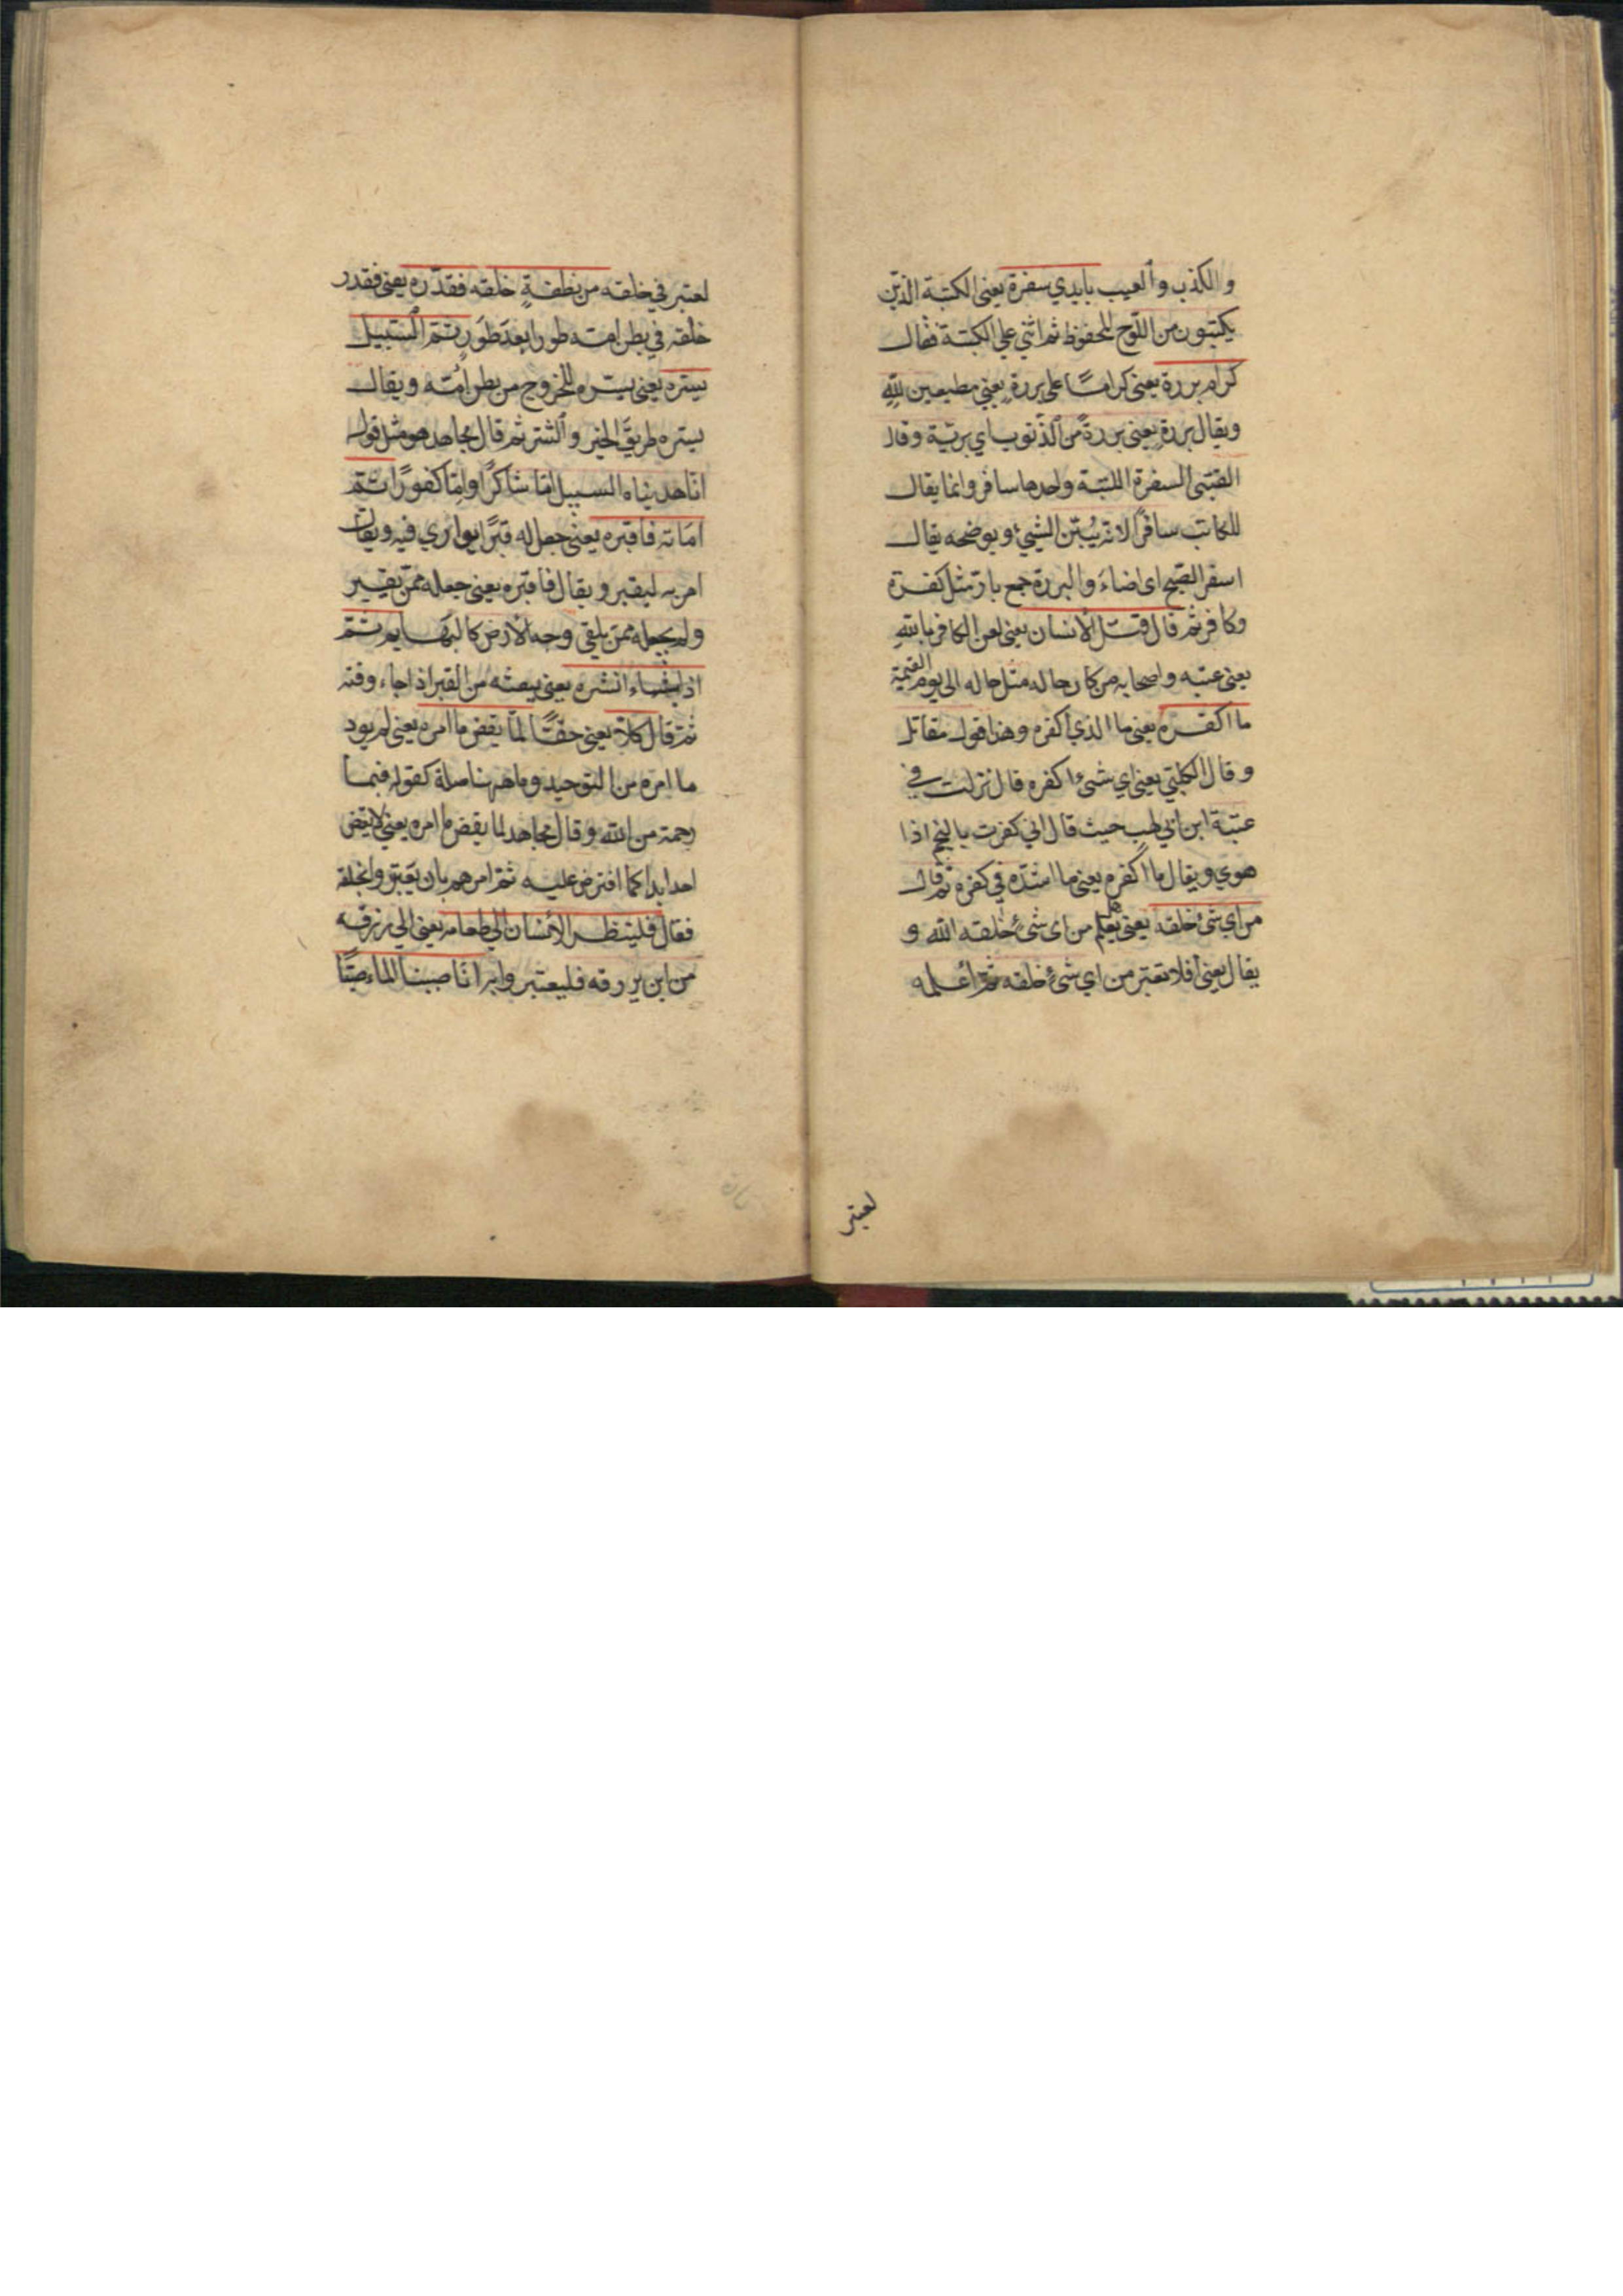 والكذب والعيب بايدي سفرة يعنى الكتبة الذين
يكتبون من اللوح المحفوظ ثم اثني علي الكتبة فقال
كرام بررة يعنى كراما على بررة يعني مطيعين لله
ويقال بررة يعنى بررة من الذنوب اي برية وقال
القتبى السفرة الكتبة واحدها سافر وانما يقال
للكاتب سافرا لانه يبين الشيئ ويوضحه يقال
اسفر الصبح اى اضاء والبررة جمع بار مثل كفرة
وكافر ثم قال قتل الانسان يعنى لعن الكافر بالله
يعنى عتبه واصحابه من كان حاله مثل حاله الى يوم القيمة
ما اكفره يعنى ما الذي اكفره وهذا قول مقاتل
وقال الكلبي يعنى اي شئ اكفره قال نزلت في
عتبة ابن ابي لهب حيث قال اني كفرت بالنجم اذا
هوي ويقال ما اكفره يعنى ما اشده في كفره ثم قال
من اي شئ خلقه يعنى يعلم من اى شئ خلقه الله و
يقال يعنى افلا تعتبر من اي شئ خلقه ثم اعلمه
لعتبر
لعتبر في خلقه من نطفة خلقه فقدره يعنى فقدر
خلقه في بطن امه طورا بعد طور ثم السبيل
يسره يعنى يسره للخروج من بطن امه ويقال
يسره طريق الخير والشر ثم قال مجاهد هو مثل قوله
انا هديناه السبيل اما شاكرا واما كفورا ثم
اماته فاقبره يعنى جعل له قبرا يواري فيه ويقال
امر به ليقبر ويقال فاقبره يعنى جعله ممن يقبر
ولم يجعله ممن يلقي وجه الارض كالبهايم ثم
اذا شاء انشره يعنى يبعثه من القبر اذا جاء وقته
ثم قال كلا يعنى حقا لما يقض ما امره يعنى لم يود
ما امره من التوحيد وما ههنا صلة كقوله فبما
رحمة من الله وقال مجاهد لما يقض ما امره يعني لا يقض
احد ابدا كما افترض عليه ثم امرهم بان يعتبروا بخلقه
فقال فلينظر الانسان الي طعامه يعنى الي رزقه
من اين يرزقه فليعتبر وابه انا صببنا الماء صبا